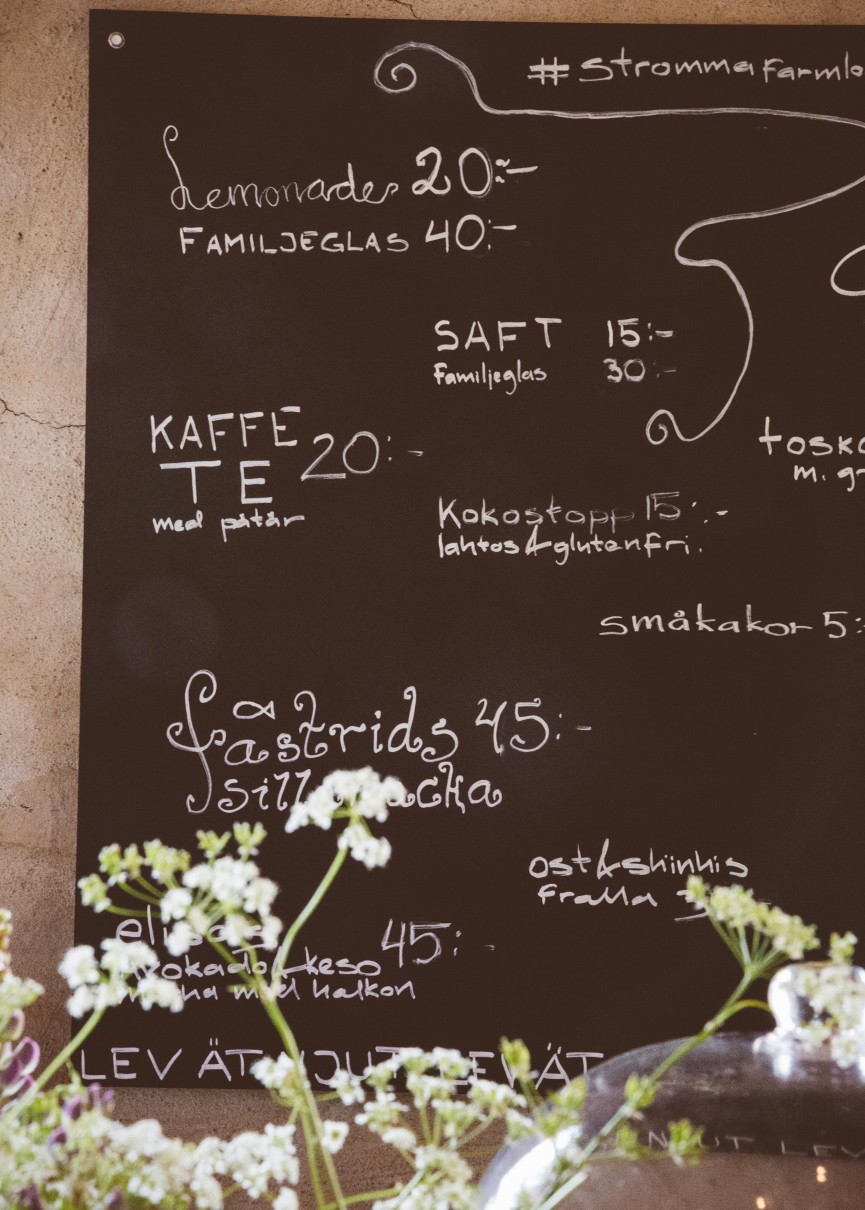 #Strommafarmlo
Lemonade 20:-
FAMILJEGLAS 40:-
SAFT 15:-
Familjeglas 30:-
KAFFE
TE 20:-
med påtår
toska
m. g
Kokostopp 15:-
laktos & glutenfri.
småkakor 5:
astrids 45:-
ost & skinkis
Fralla
45:-
keso
med kalkon
LEV ÄT NJUT LEV ÄT
NJUT LEV